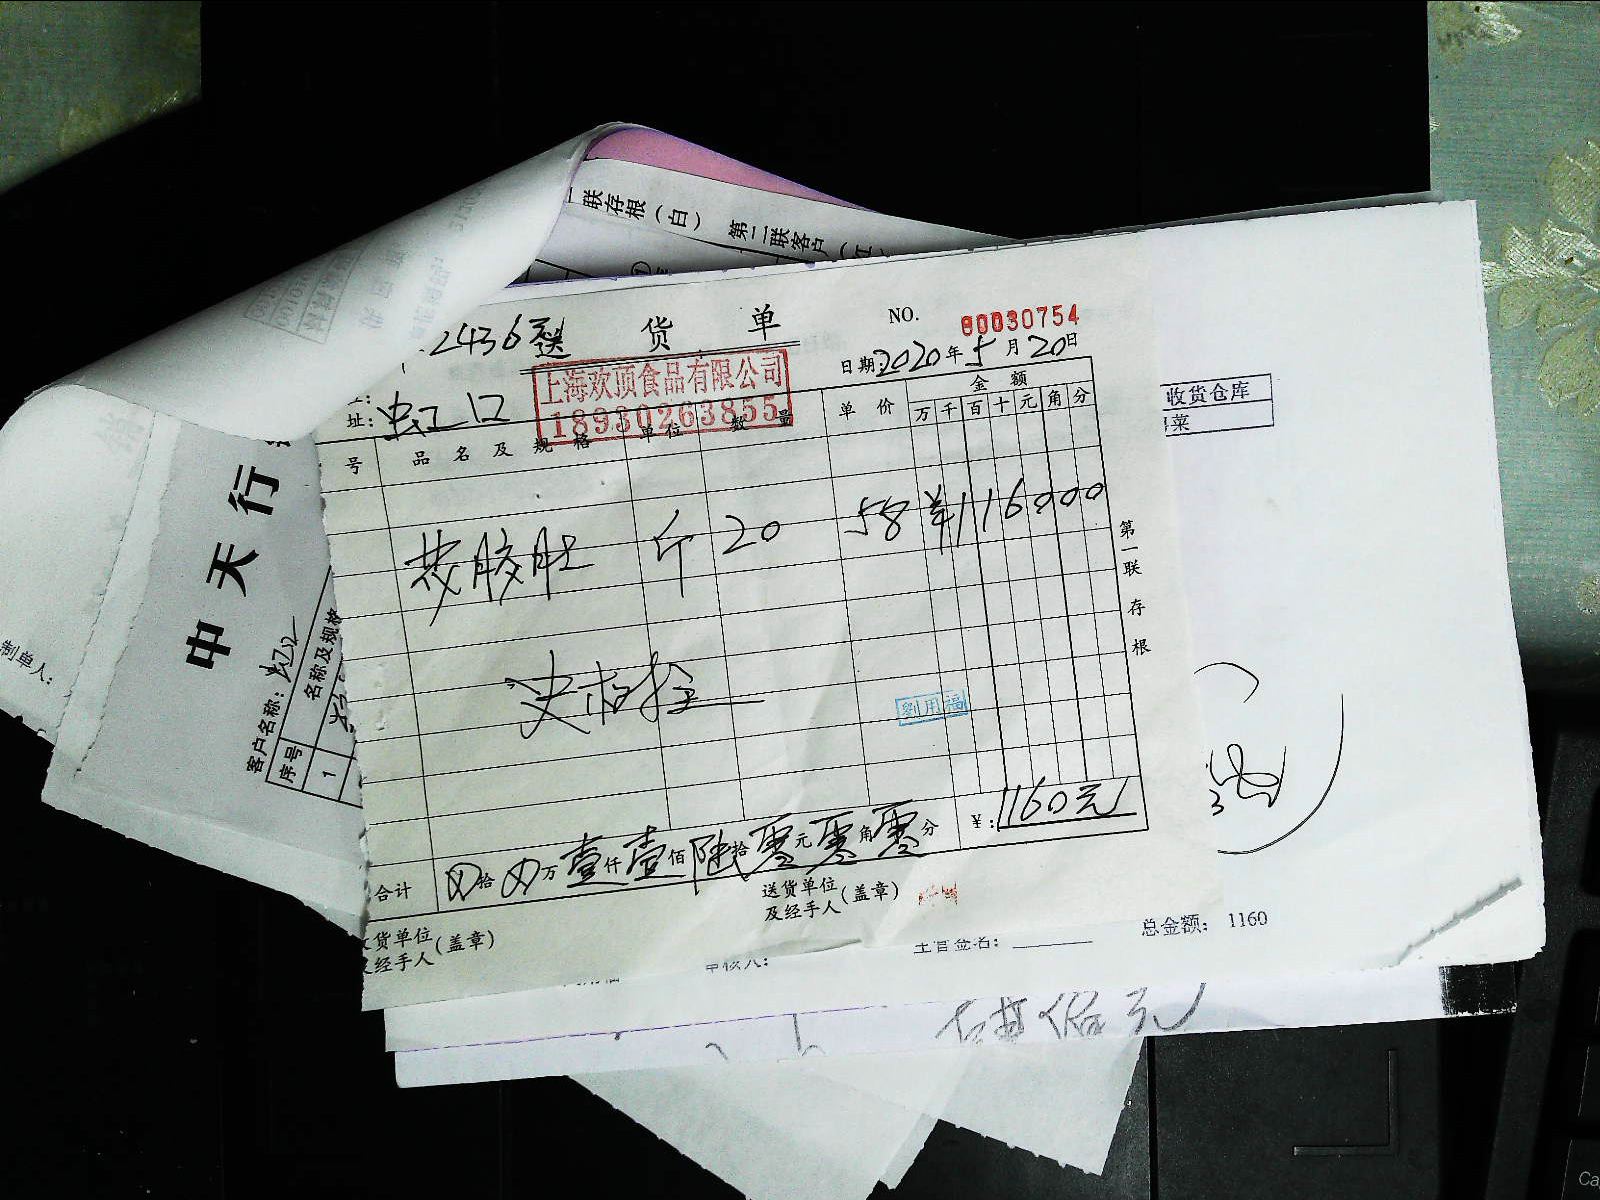 联存根(白) 第二联客户(红
2436送 货 单
NO. 00030754
日期:2020年5月20日
上海欢顶食品有限公司
18930263855
址:虹口
号 品名及规格 单位 数量 单价 金额
万 千 百 十 元 角 分
花胶肚 斤 20 58 ¥116000
第一联 存根
劉用福
合计 ⊗拾⊗万壹仟壹佰陆拾零元零角零分 ¥:1160元
收货单位
及经手人(盖章)
送货单位
及经手人(盖章)
收货仓库
菜
总金额: 1160
主管签名:
审核人:
佰元
中天行
客户名称:虹江
序号 名称及规格
1
制单人: